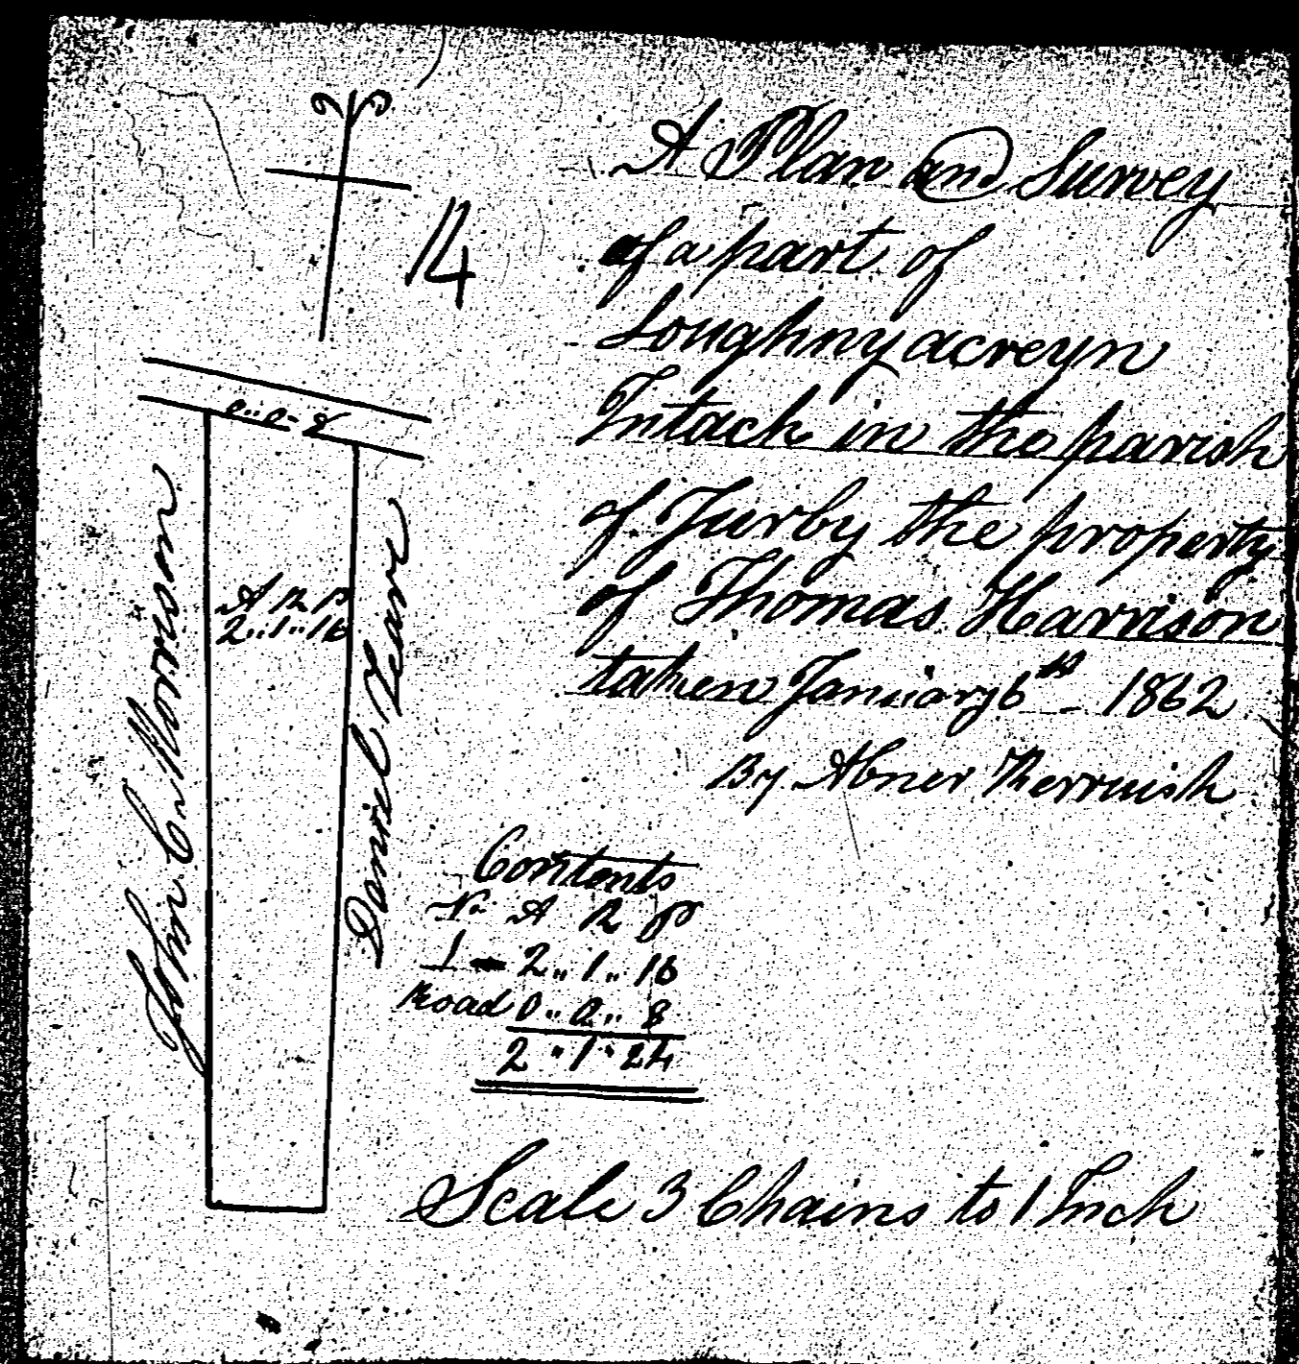 A Plan and Survey
of a part of
Loughnyacreyn
Intack in the parish
of Jurby the property
of Thomas Harrison
taken January 6th - 1862
By Abner Kerruish
14
0..0-8
A R P
2..1..16
John C Morrison
Daniel Keare
Contents
No. A R P
1 - 2..1..16
Road 0..0..8
2..1..24
Scale 3 Chains to 1 Inch